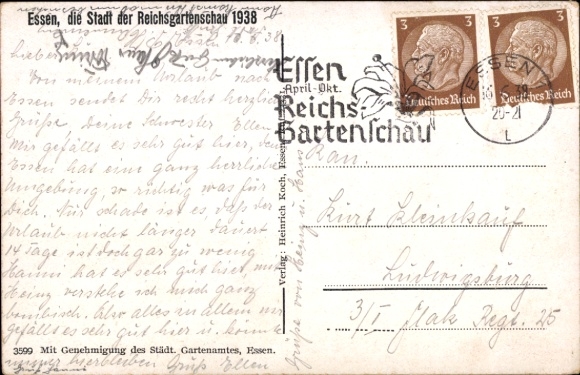 Essen, die Stadt der Reichsgartenschau 1938
Essen
April-Okt.
Reichs
Gartenschau
3
3
Deutsches Reich
Deutsches Reich
ESSEN
20-21
L
Von meinem Urlaub nach
Essen sendet Dir recht herzliche
Grüße, deine Schwester Ellen
Mir gefällt es sehr gut hier, denn
Essen hat eine ganz herrliche
Umgebung, so richtig was für
Dich. Nur schade ist es, daß der
Urlaub nicht länger dauert
14 Tage ist doch gar zu wenig
Hanni hat es sehr gut hier, mit
Heinz verstehe ich mich ganz
bombisch. Also alles in allem mir
gefällt es sehr gut hier u. könnte
immer hierbleiben Gruß Ellen
Gruß Hanni
Grüße von Heinz u. Hans
Verlag: Heinrich Koch, Essen
Kan.
Kurt Kleinkauf
Ludwigsburg
3/I Flak Regt. 25
3599 Mit Genehmigung des Städt. Gartenamtes, Essen.